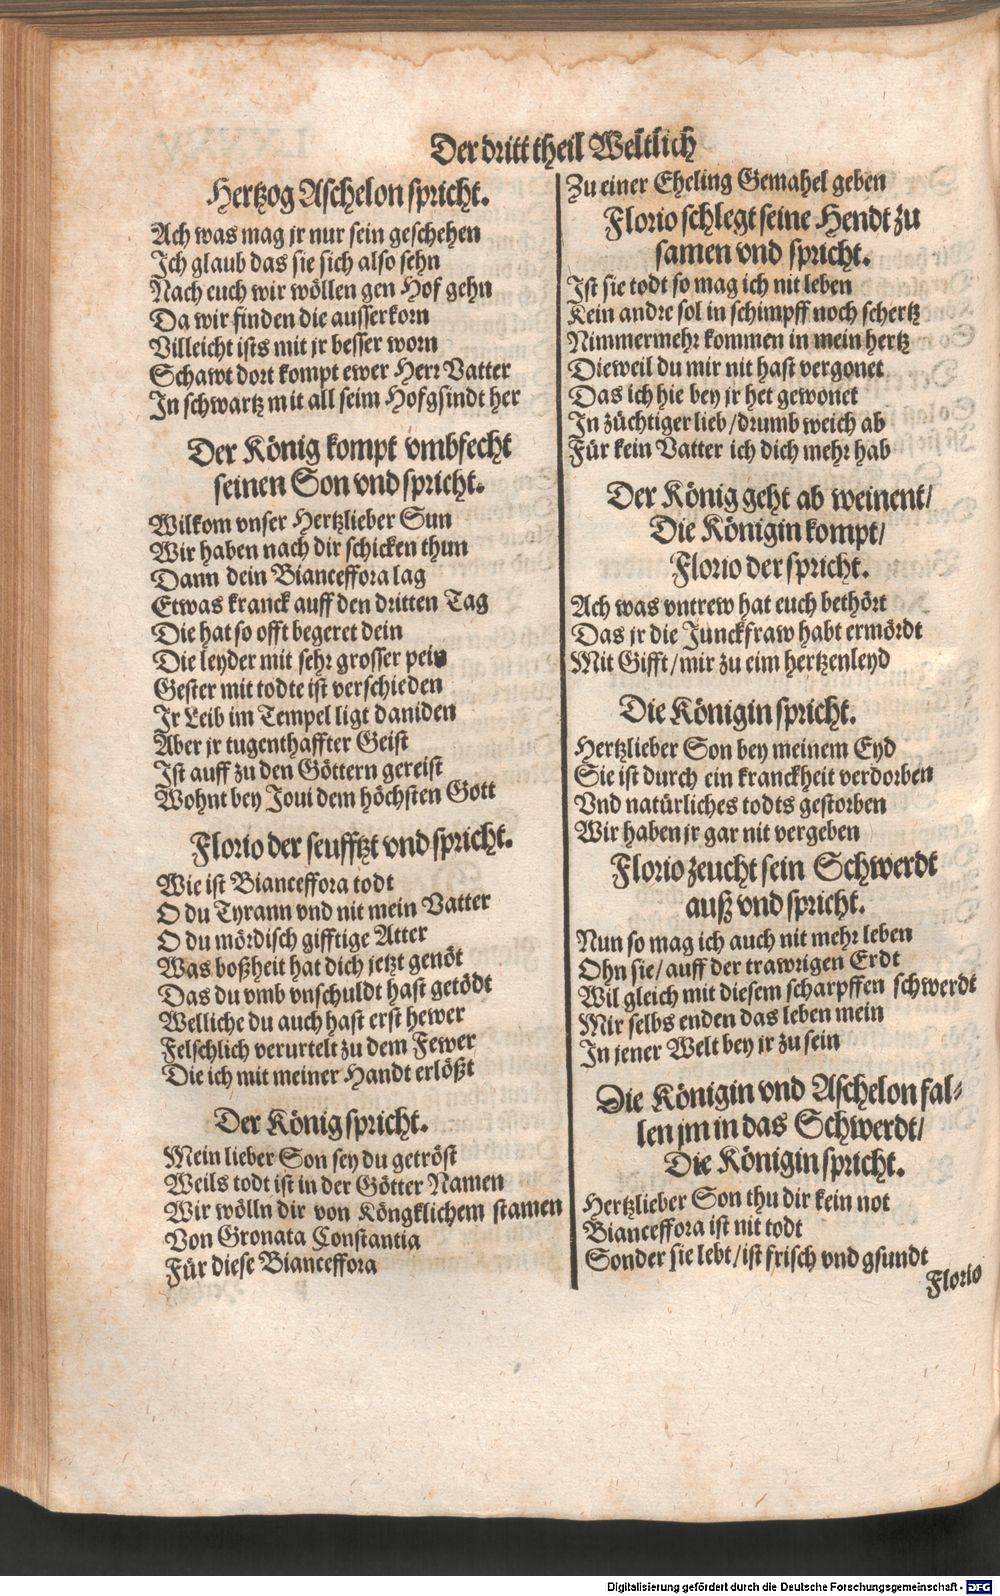 Der dritt theil Weltlich
Hertzog Aschelon spricht.
Ach was mag jr nur sein geschehen
Ich glaub das sie sich also sehn
Nach euch wir wöllen gen Hof gehn
Da wir finden die ausserkorn
Villeicht ists mit jr besser worn
Schawt dort kompt ewer Herr Vatter
In schwartz mit all seim Hofgsindt her
Der König kompt vmbfecht
seinen Son vnd spricht.
Wilkom vnser Hertzlieber Sun
Wir haben nach dir schicken thun
Dann dein Bianceffora lag
Etwas kranck auff den dritten Tag
Die hat so offt begeret dein
Die leyder mit sehr grosser pein
Gester mit todte ist verschieden
Ir Leib im Tempel ligt daniden
Aber jr tugenthaffter Geist
Ist auff zu den Göttern gereist
Wohnt bey Joui dem höchsten Gott
Florio der seufftzt vnd spricht.
Wie ist Bianceffora todt
O du Tyrann vnd nit mein Vatter
O du mördisch gifftige Atter
Was boßheit hat dich jetzt genöt
Das du vmb vnschuldt hast getödt
Welliche du auch hast erst hewer
Felschlich verurtelt zu dem Fewer
Die ich mit meiner Handt erlößt
Der König spricht.
Mein lieber Son sey du getröst
Weils todt ist in der Götter Namen
Wir wölln dir von Köngklichem stamen
Von Gronata Constantia
Für diese Bianceffora
Zu einer Eheling Gemahel geben
Florio schlegt seine Hendt zu
samen vnd spricht.
Ist sie todt so mag ich nit leben
Kein andre sol in schimpff noch schertz
Nimmermehr kommen in mein hertz
Dieweil du mir nit hast vergonet
Das ich hie bey jr het gewonet
In züchtiger lieb/drumb weich ab
Für kein Vatter ich dich mehr hab
Der König geht ab weinent/
Die Königin kompt/
Florio der spricht.
Ach was vntrew hat euch bethört
Das jr die Junckfraw habt ermördt
Mit Gifft/mir zu eim hertzenleyd
Die Königin spricht.
Hertzlieber Son bey meinem Eyd
Sie ist durch ein kranckheit verdorben
Vnd natürliches todts gestorben
Wir haben jr gar nit vergeben
Florio zeucht sein Schwerdt
auß vnd spricht.
Nun so mag ich auch nit mehr leben
Ohn sie/auff der trawrigen Erdt
Wil gleich mit diesem scharpffen schwerdt
Mir selbs enden das leben mein
In jener Welt bey jr zu sein
Die Königin vnd Aschelon fal-
len jm in das Schwerdt/
Die Königin spricht.
Hertzlieber Son thu dir kein not
Bianceffora ist nit todt
Sonder sie lebt/ist frisch vnd gsundt
Florio
Digitalisierung gefördert durch die Deutsche Forschungsgemeinschaft - DFG